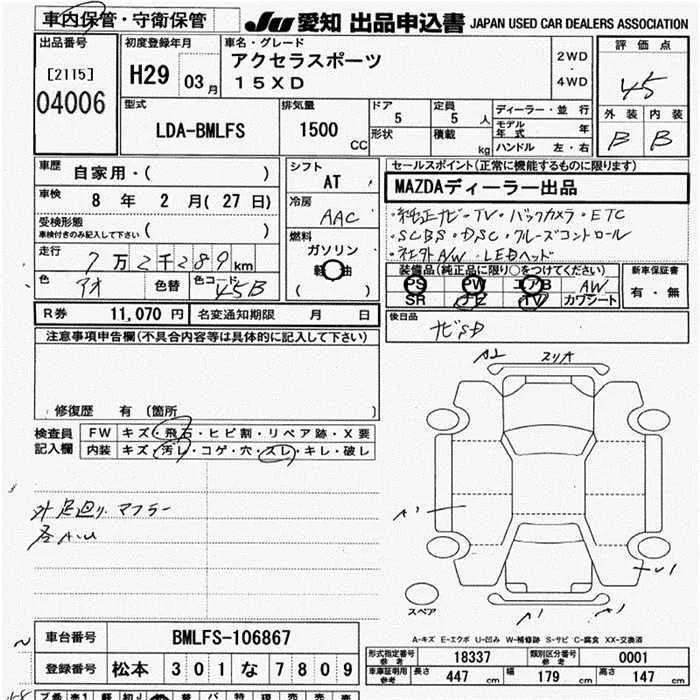 車内保管・守衛保管
JU 愛知 出品申込書 JAPAN USED CAR DEALERS ASSOCIATION
出品番号
[2115]
04006
初度登録年月
H29 03月
車名・グレード
アクセラスポーツ
15XD
2WD
・
4WD
評価点
4.5
外装 内装
B B
型式
LDA-BMLFS
排気量
1500 CC
ドア
5
形状
定員
5 人
積載
kg
ディーラー・並行
モデル年式 年
ハンドル 左・右
車歴
自家用・( )
車検
8 年 2 月 (27 日)
受検形態
車検付きのみ記入して下さい ( )
走行
7万2千289 km
色
アオ
色替
色コード
45B
シフト
AT
冷房
AAC
燃料
ガソリン
軽油
( )
セールスポイント(正常に機能するものに限ります)
MAZDAディーラー出品
・純正ナビ・TV・バックカメラ・ETC
・SCBS・DSC・クルーズコントロール
・社外A/W・LEDヘッド
装備品(純正品に限り○をつけてください)
PS PW エアB AW
SR ナビ TV カワシート
新車保証書
有・無
後日品
ナビSD
R券 11,070 円
名変通知期限 月 日
注意事項申告欄(不具合内容等は具体的に記入して下さい)
修復歴 有 (箇所 )
検査員
記入欄
FW キズ・飛石・ヒビ割・リペア跡・X要
内装 キズ・汚レ・コゲ・穴・スレ・キレ・破レ
外 足廻り、マフラー
各A.U
A2 スリA
A1
U1
A1 A1
スペア
A-キズ E-エクボ U-凹み W-補修跡 S-サビ C-腐食 XX-交換済
車台番号 BMLFS-106867
登録番号 松本 301 な 7809
形式指定番号
参考
18337
類別区分番号
参考
0001
車庫証明用
参考
長さ 447 cm 幅 179 cm 高さ 147 cm